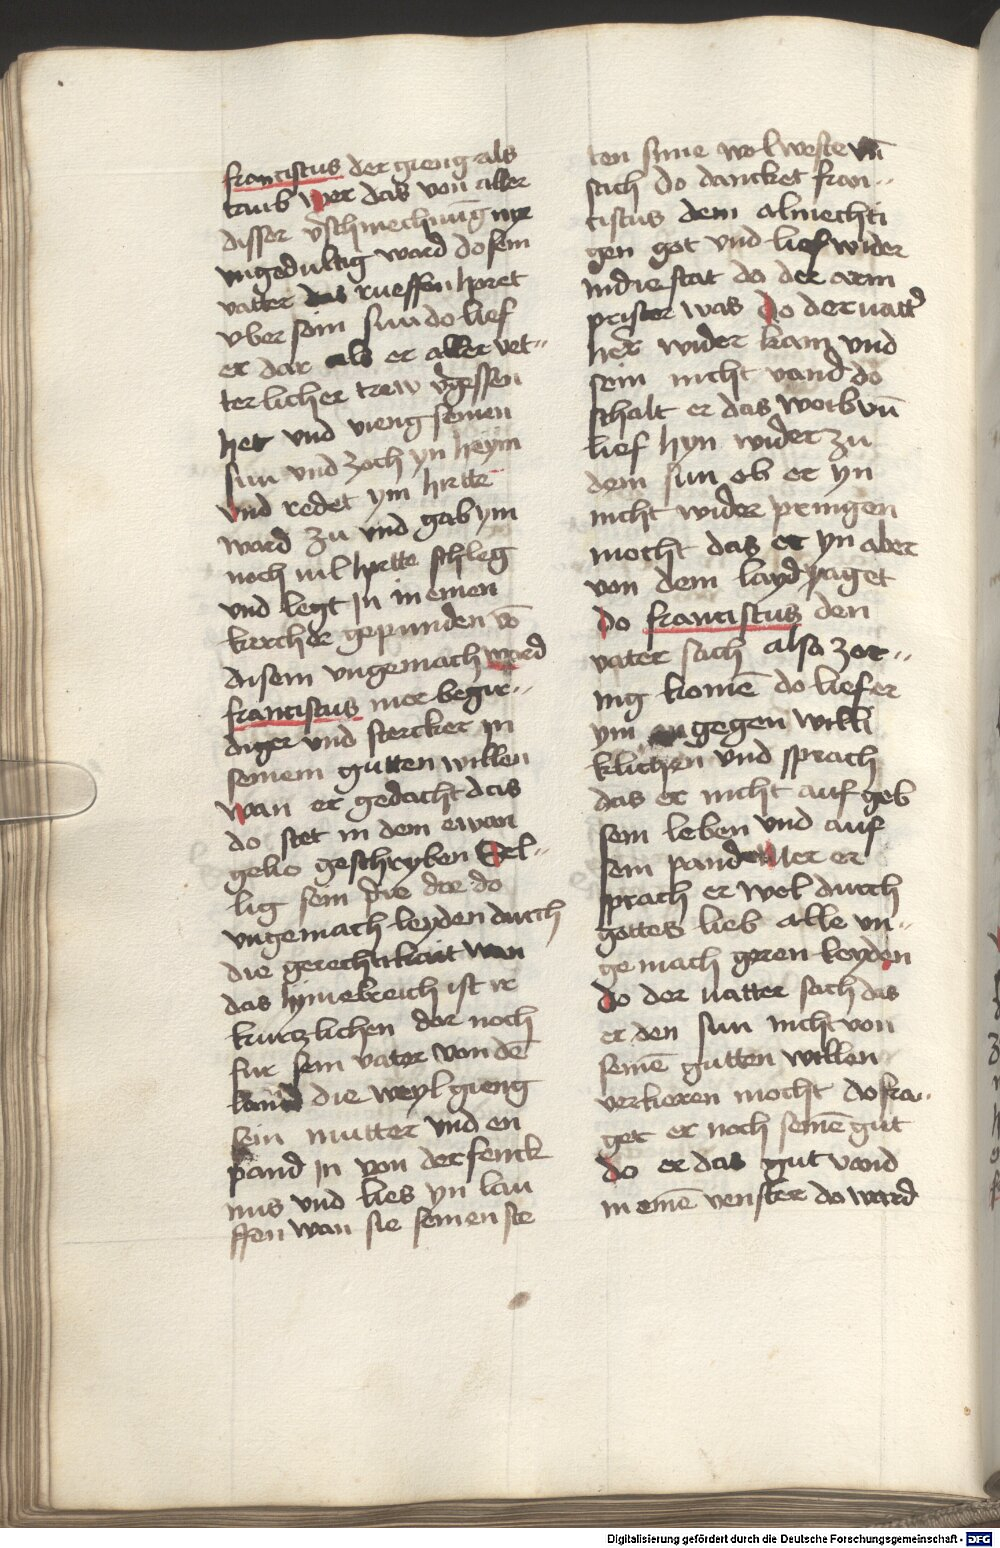 franciscus der gieng als
taub wer das von aller
disser v̄schmechnūg nye
vngedultig ward do sein
vatter das rueffen horet
vber sein sun do lief
er dar als er aller vet-
terlicher trew v̄gessen
het vnd vieng seinen
sun vnd zoch yn heym
vnd redet ym hertte
ward zu vnd gab ym
noch vil hertte schleg
vnd legt in in einen
kercher gepunden vō
disem vngemach ward
franciscus mer begir-
diger vnd stercker in
seinem gutten willen
wan er gedacht das
do stet in dem ewan
gelio geschryben Sel-
lig sein die die do
vngemach leyden durch
die gerechtikait wan
das hymelreich ist ir
kurczlichen dar noch
fur sein vater von dē
land die weyl gieng
sein mutter vnd en
pand in von der fenck
nus vnd lies yn lau
ffen wan sie seinen ste
ten sine wol weste vn̄
sach do dancket fran-
ciscus dem almechti
gen got vnd lief wider
in die stat do der arm
prister was do der vatt̄
her wider kam vnd
sein nicht vand do
schalt er das weib vn̄
lief hyn wider zu
dem sun ob er yn
nicht wider pringen
mocht das er yn aber
von dem layd jaget
do franciscus den
vater sach also zor-
nig komē do lief er
ym engegen willi
klichen vnd sprach
das er nicht auf geb
sein leben vnd auf
sein panden er
sprach er wol durch
gottes lieb alle vn-
gemach geren leyden
do der vatter sach das
er den sun nicht von
seinē gutten willen
verkeren mocht do fra-
get er noch seinē gut
do er das gut vand
in einē venster do ward
Digitalisierung gefördert durch die Deutsche Forschungsgemeinschaft - DFG